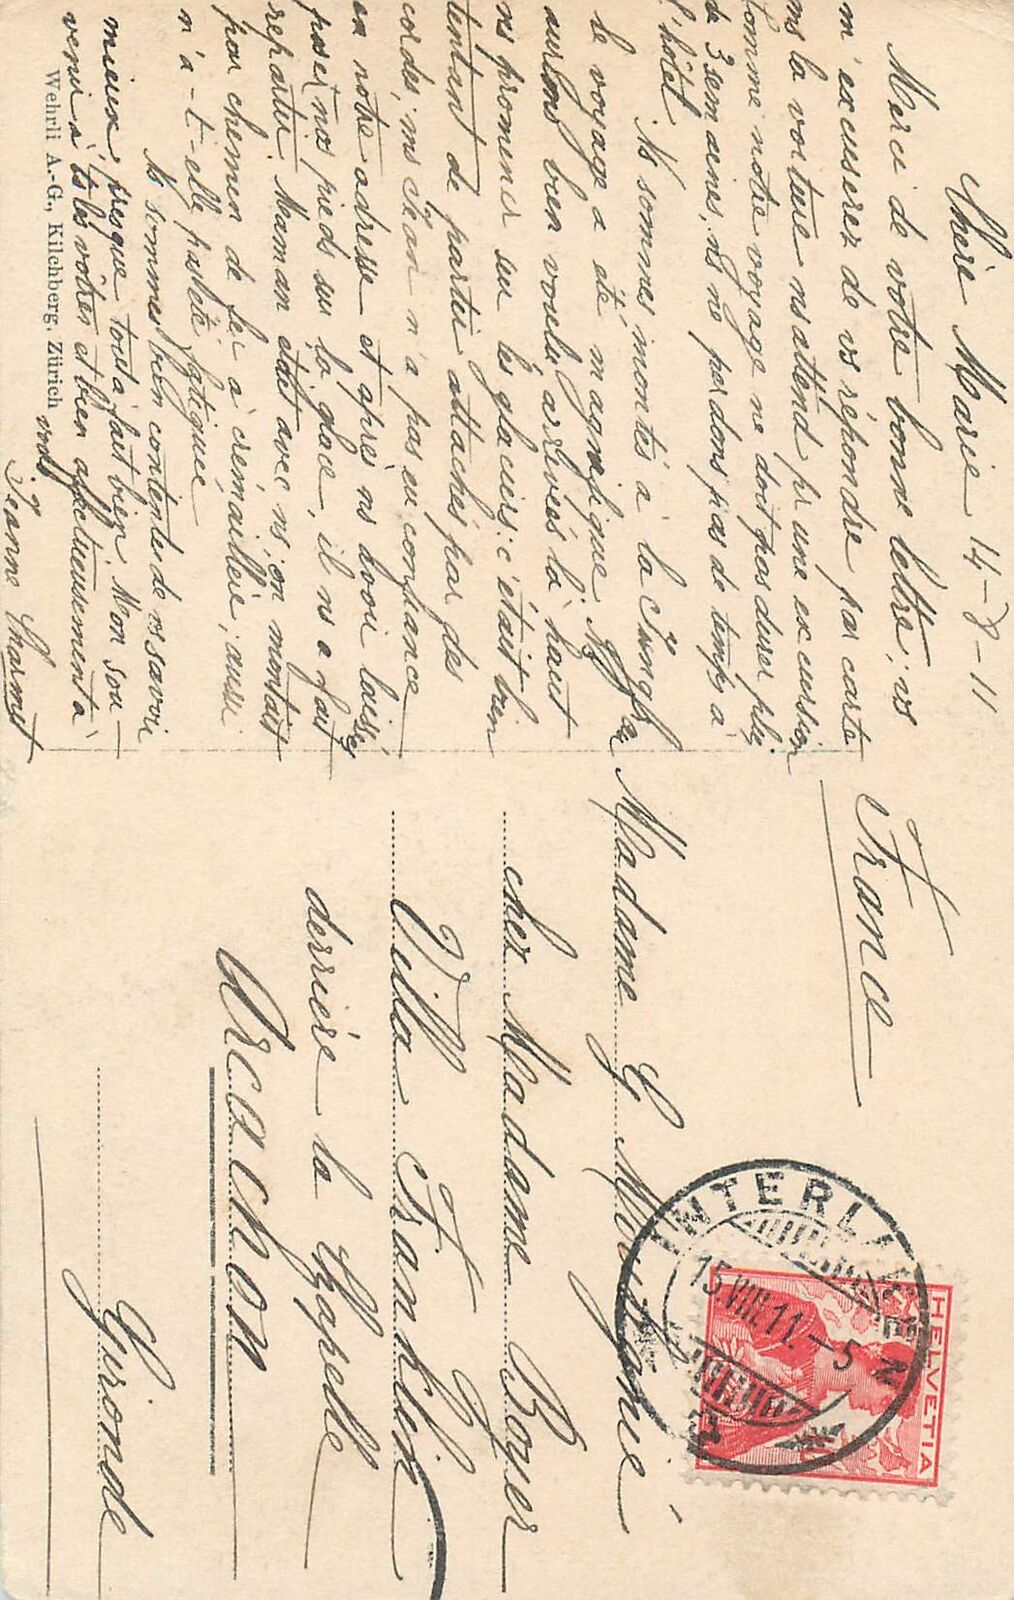 Chère Marie 14-8-11
Merci de votre bonne lettre; vs
m'excuserez de vs répondre par carte
ms la voiture ns attend pr une excursion
Comme notre voyage ne doit pas durer plus
de 3 semaines, ns ne perdons pas de temps à
l'hôtel.
Ns sommes montés à la Jungfrau
le voyage a été magnifique. Ns
aurions bien voulu arrivées là haut
ns promener sur les glaciers: c'était bien
tentant de partir attachés par des
cordes, ms n'a pas eu confiance
en notre adresse et après ns avoir laissé
poser nos pieds sur la glace, il ns a fait
repartir. Maman était avec ns; on montait
par chemin de fer à crémaillère; aussi
n'a-t-elle pas été fatiguée
Ns sommes bien contentes de vs savoir
mieux, presque tout à fait bien. Mon sou-
venir à ts les vôtres et bien affectueusement à
vous
Jeanne
Wehrli A.-G., Kilchberg, Zürich
France
Madame G.
chez Madame Boyer
Villa Franklin
derrière la Chapelle
Arcachon
Gironde
INTERLAKEN
15.VIII.11.-5
HELVETIA